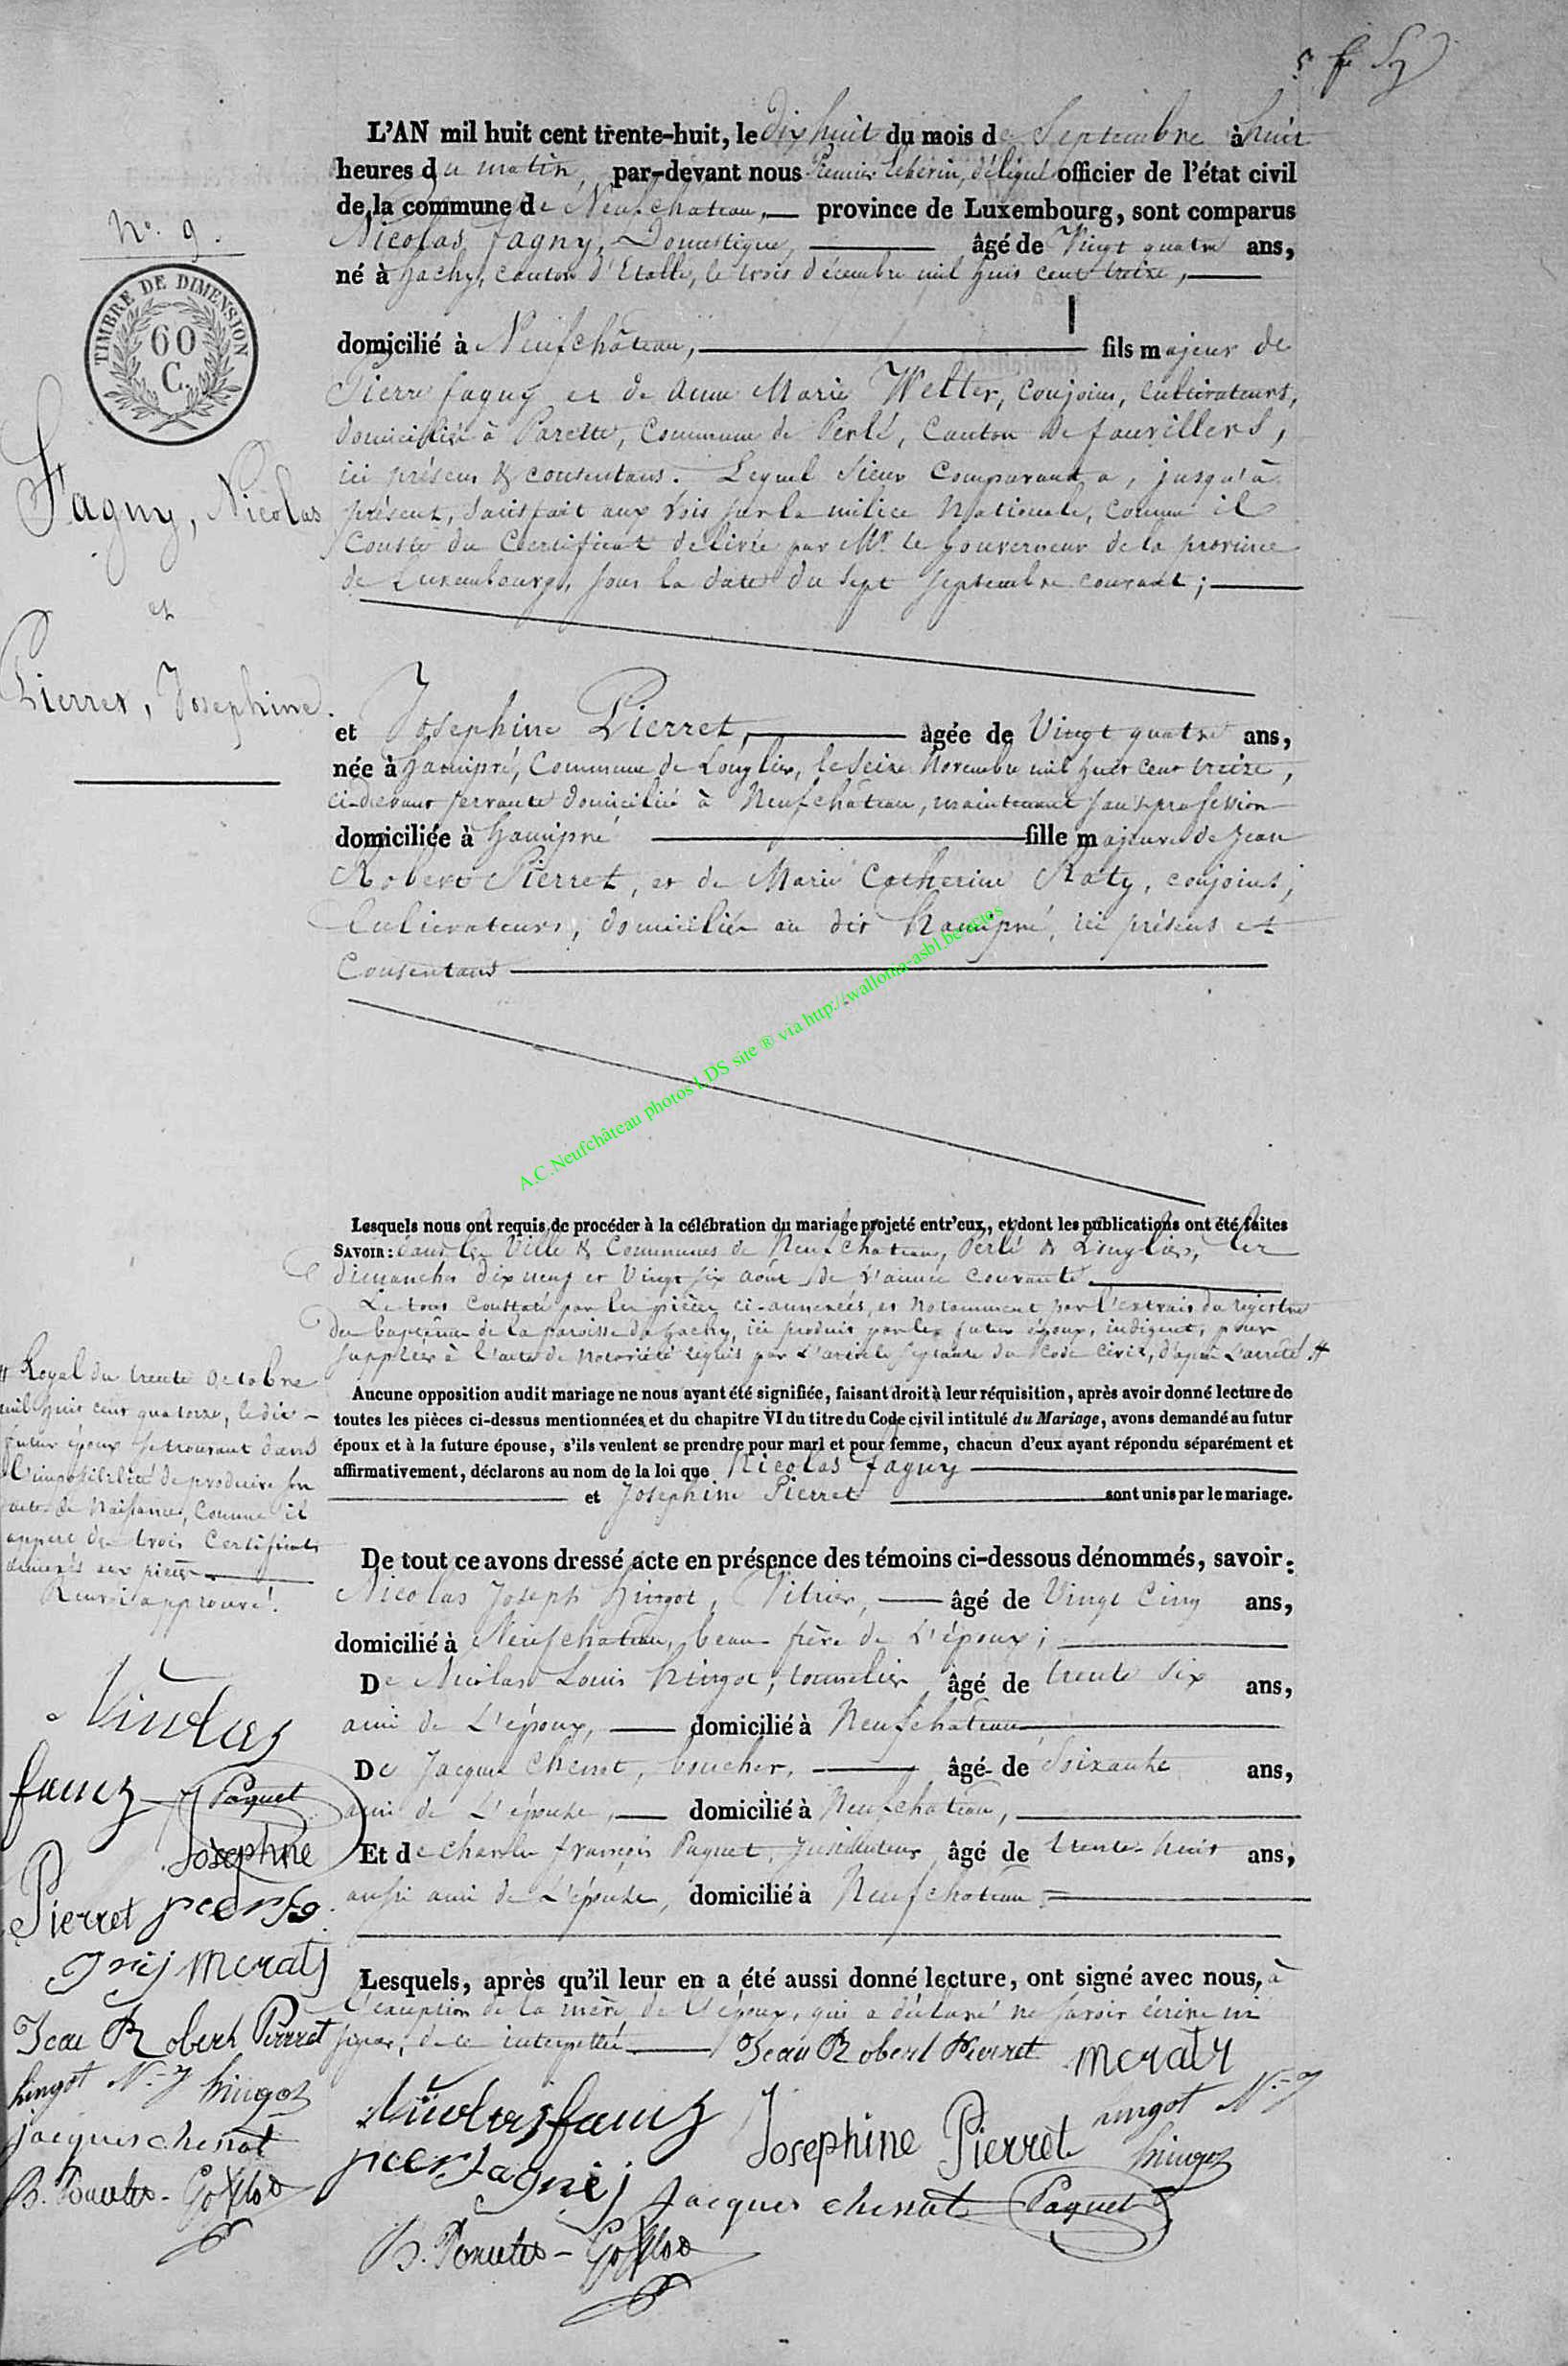 L'AN mil huit cent trente-huit, le dix huit du mois de Septembre à huit
heures du matin, par-devant nous Premier Echevin, délégué officier de l'état civil
de la commune de Neufchateau, province de Luxembourg, sont comparus
Nicolas fagny, Domestique, âgé de Vingt quatre ans,
né à hachy, canton d'Etalle, le trois décembre mil huit cent treize,
domicilié à Neufchâteau, fils majeur de
Pierre fagny et de Anne Marie Welter, conjoins, cultivateurs,
domiciliés à Parette, Commune de Perlé, Canton de fauvillers,
ici présens & consentans. Lequel Sieur Comparant a, jusqu'à
présent, Satisfait aux lois sur la milice Nationale, comme il
Conste du Certificat délivré par Mr. le gouverneur de la province
de Luxembourg, sous la date du sept septembre courant;
et Josephine Pierret, âgée de Vingt quatre ans,
née à hamipré, Commune de Longlier, le Seize Novembre mil huit cent treize,
ci-devant servante domiciliée à Neufchateau, maintenant sans profession
domiciliée à hamipré fille majeure de Jean
Robert Pierret, et de Marie Catherine Raty, conjoins,
Cultivateurs, domiciliés au dit hamipré, ici présens et
Consentans
Lesquels nous ont requis de procéder à la célébration du mariage projeté entr'eux, et dont les publications ont été faites
SAVOIR: dans les Ville & Communes de Neufchateau, Perlé & Longlier, les
dimanches dix neuf et Vingt six août de l'année courante.
Le tout constaté par les pièces ci-annexées, et notamment par l'extrait du registre
des baptêmes de la paroisse de hachy, ici produit par les futur époux, indigent, pour
suppléer à l'acte de notoriété requis par l'article septante du Code Civil, d'après L'arrêté #
Aucune opposition audit mariage ne nous ayant été signifiée, faisant droit à leur réquisition, après avoir donné lecture de
toutes les pièces ci-dessus mentionnées et du chapitre VI du titre du Code civil intitulé du Mariage, avons demandé au futur
époux et à la future épouse, s'ils veulent se prendre pour mari et pour femme, chacun d'eux ayant répondu séparément et
affirmativement, déclarons au nom de la loi que Nicolas fagny
et Josephine Pierret sont unis par le mariage.
De tout ce avons dressé acte en présence des témoins ci-dessous dénommés, savoir:
Nicolas Joseph hingot, Vitrier, âgé de Vingt Cinq ans,
domicilié à Neufchateau, beau-frère de L'époux;
De Nicolas Louis hingot, tonnelier âgé de trente six ans,
ami de L'époux, domicilié à Neufchateau,
De Jacques Chenot, boucher, âgé de Soixante ans,
ami de L'épouse, domicilié à Neufchateau,
Et de Charles françois Paquet, Instituteur âgé de trente-huit ans,
aussi ami de L'épouse, domicilié à Neufchateau.
Lesquels, après qu'il leur en a été aussi donné lecture, ont signé avec nous, à
L'exception de la mère de L'époux, qui a déclaré ne savoir écrire ni
signer, de ce interpellée
Jean Robert Pierret mcraty
Nicolas fanij Josephine Pierret hingot N.-J hingot
pier fagnij Jacques chenot Paquet
No. 9.
TIMBRE DE DIMENSION
60
C.
Fagny, Nicolas
et
Pierret, Josephine.
# Royal du trente Octobre
mil huit cent quatorze, le dit
futur époux se trouvant dans
L'impossibilité de produire son
acte de Naissance, Comme il
appert des trois Certificats
annexés aux pièces
Renvoi approuvé.
Nicolas
fanij Paquet
Josephine
Pierret pier fa
gnij mcraty
Jean Robert Pierret
hingot N.-J hingot
jacques chenot
A.C.Neufchâteau photos LDS site ® via http://wallonia-asbl.be/actes